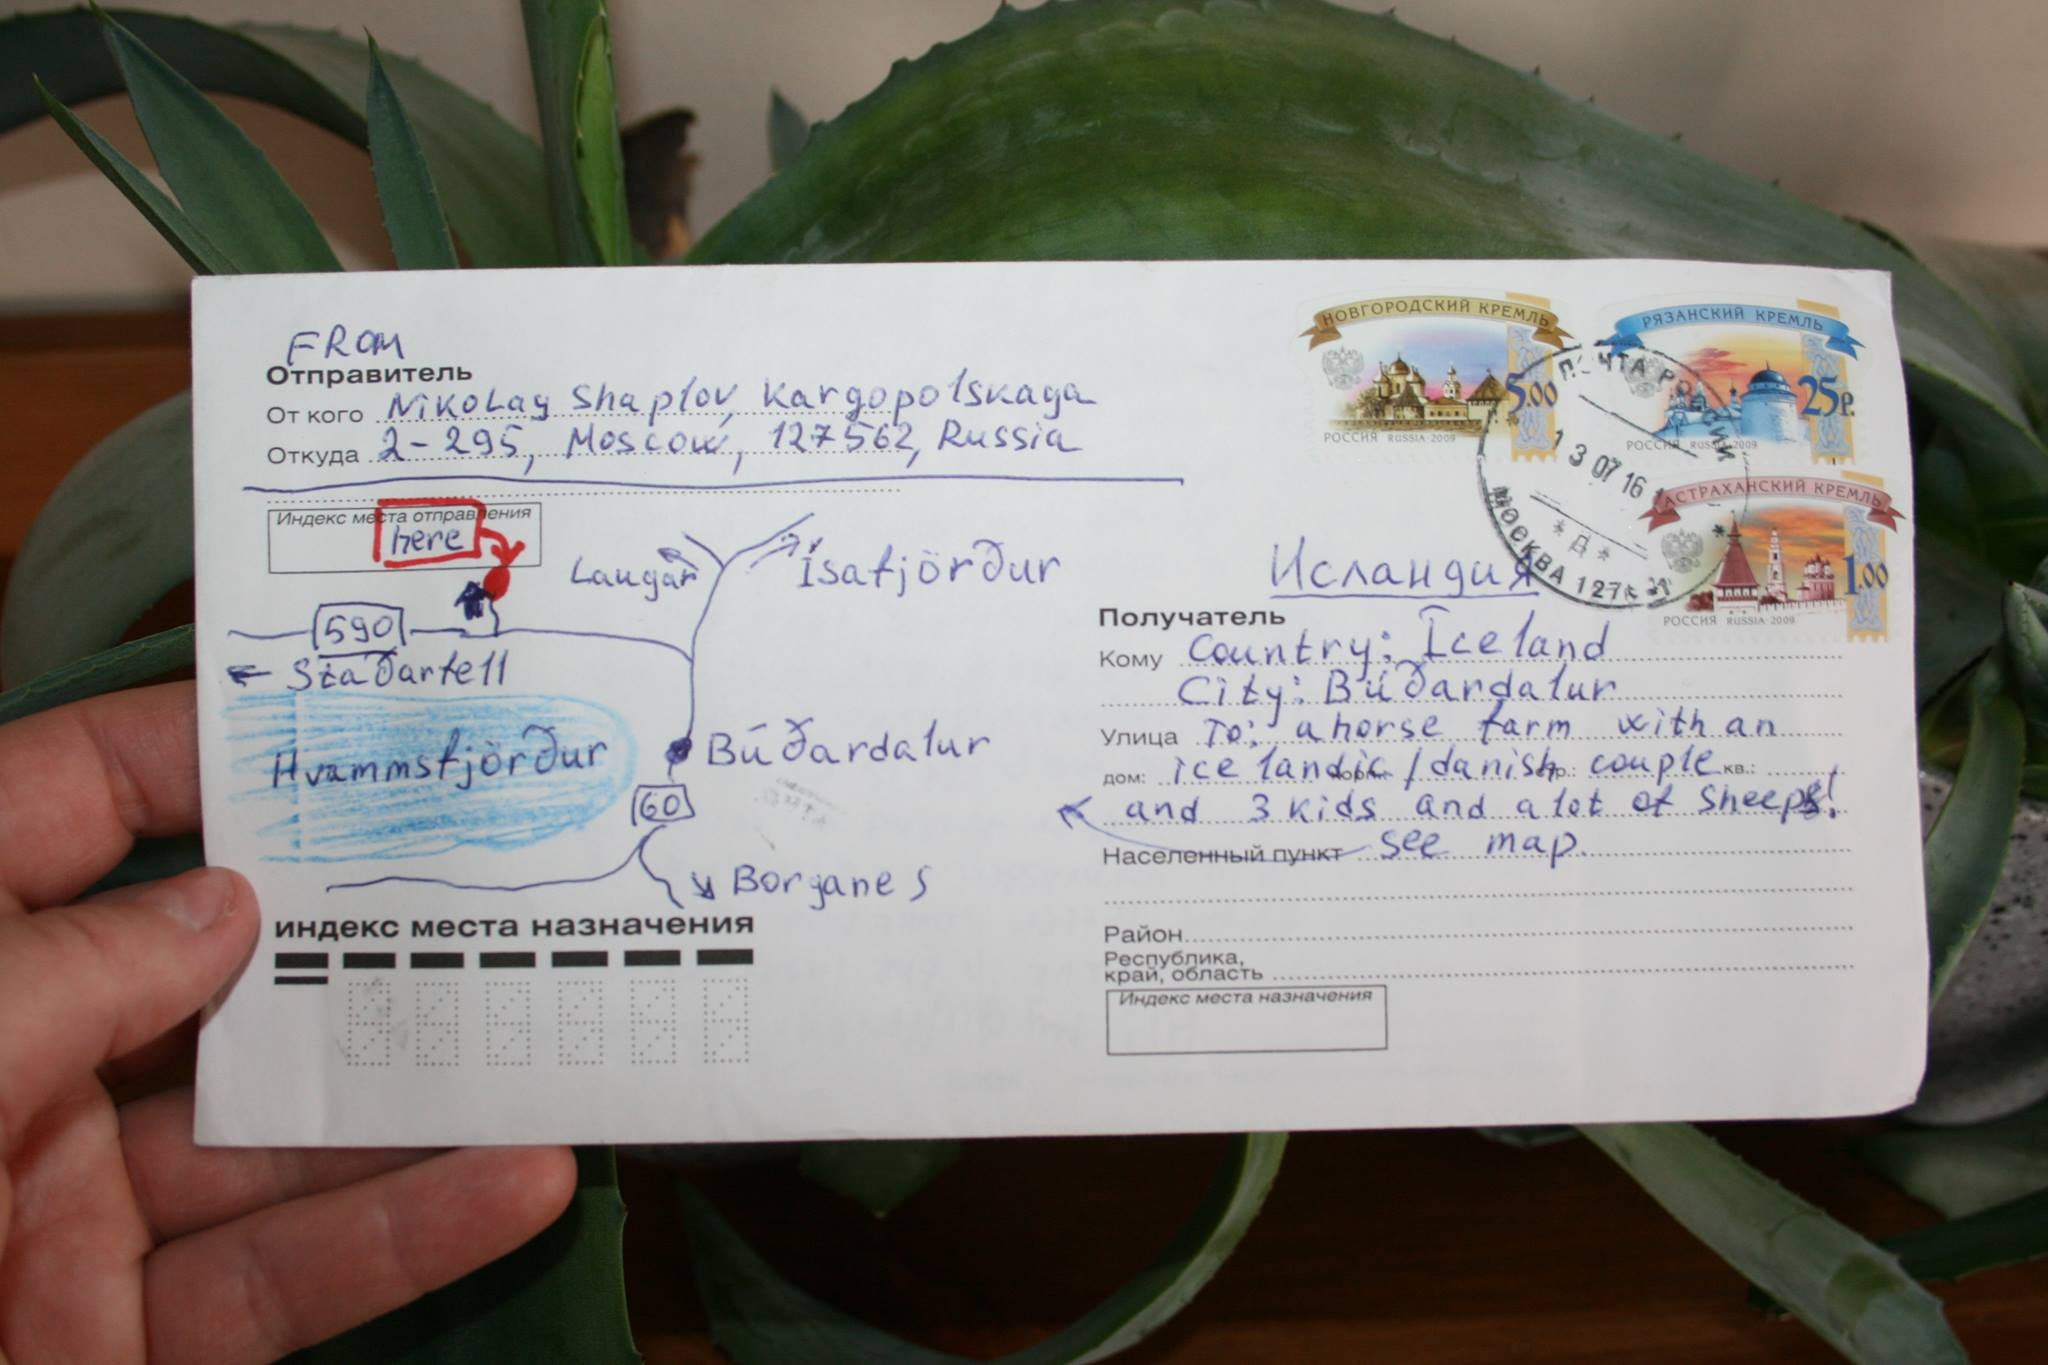 FROM
Отправитель
От кого Nikolay Shaplov, Kargopolskaga
Откуда 2-295, Moscow, 127562, Russia
Индекс места отправления
here
Laugar
Ísafjörður
590
Staðarfell
Hvammsfjörður
Búðardalur
60
Borganes
индекс места назначения
НОВГОРОДСКИЙ КРЕМЛЬ
5.00
РОССИЯ RUSSIA 2009
РЯЗАНСКИЙ КРЕМЛЬ
25р.
РОССИЯ RUSSIA 2009
АСТРАХАНСКИЙ КРЕМЛЬ
1.00
РОССИЯ RUSSIA 2009
ПОЧТА РОССИИ
13 07 16
* Д *
МОСКВА 127
Исландия
Получатель
Кому Country: Iceland
City: Búðardalur
Улица To: a horse farm with an
дом: icelandic/danish couple кв.:
and 3 kids and a lot of sheeps!
Населенный пункт see map.
Район
Республика,
край, область
Индекс места назначения